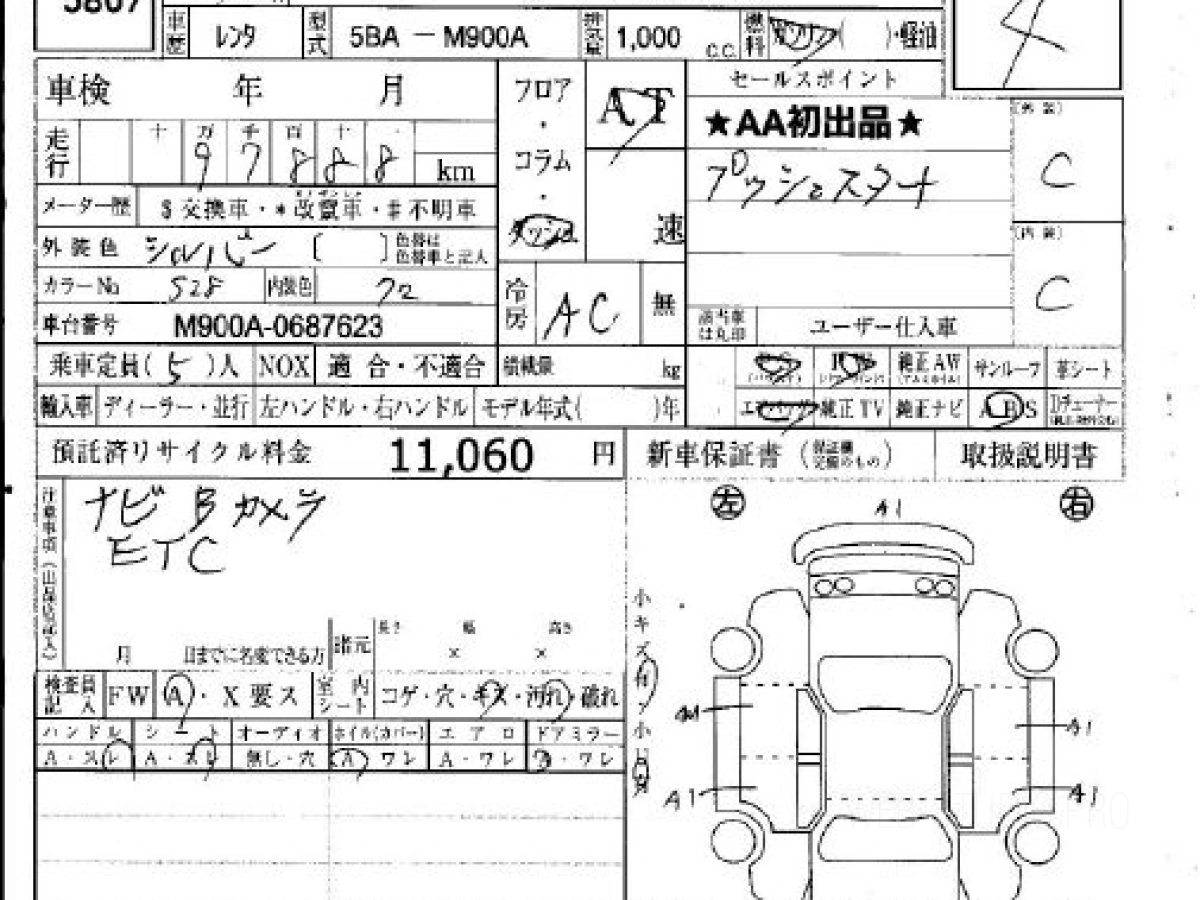 5807
車歴 レンタ 型式 5BA － M900A 排気量 1,000 C.C. 燃料 ガソリン( )・軽油
4
車検 年 月 フロア・コラム・ダッシュ AT 速
セールスポイント
★AA初出品★
プッシュスタート
(外装) C
(内装) C
走行 十 万 千 百 十 ・
97888 km
メーター歴 $交換車・*改竄車・#不明車
外装色 シルバー 〔 〕色替は色替車と記入
カラーNo S28 内装色 クロ
冷房 AC 無
車台番号 M900A-0687623
該当車は丸印 ユーザー仕入車
乗車定員( 5 )人 NOX 適合・不適合 積載量 kg
PS PW 純正AW サンルーフ 革シート
輸入車 ディーラー・並行 左ハンドル・右ハンドル モデル年式( )年
エアバッグ 純正TV 純正ナビ ABS
預託済リサイクル料金 11,060 円 新車保証書 取扱説明書
注意事項(出品店記入)
ナビ Bカメラ
ETC
左 右
A1
月 日までに名変できる方 諸元 長さ × 幅 × 高さ
検査員記入 FW A・X要ス 室内シート コゲ・穴・キズ・汚れ・破れ
ハンドル シート オーディオ ホイル(カバー) エアロ ドアミラー
A・スレ A・スレ 無し・穴 A ワレ A・ワレ ・ワレ
小キズ有
A1
A1 A1